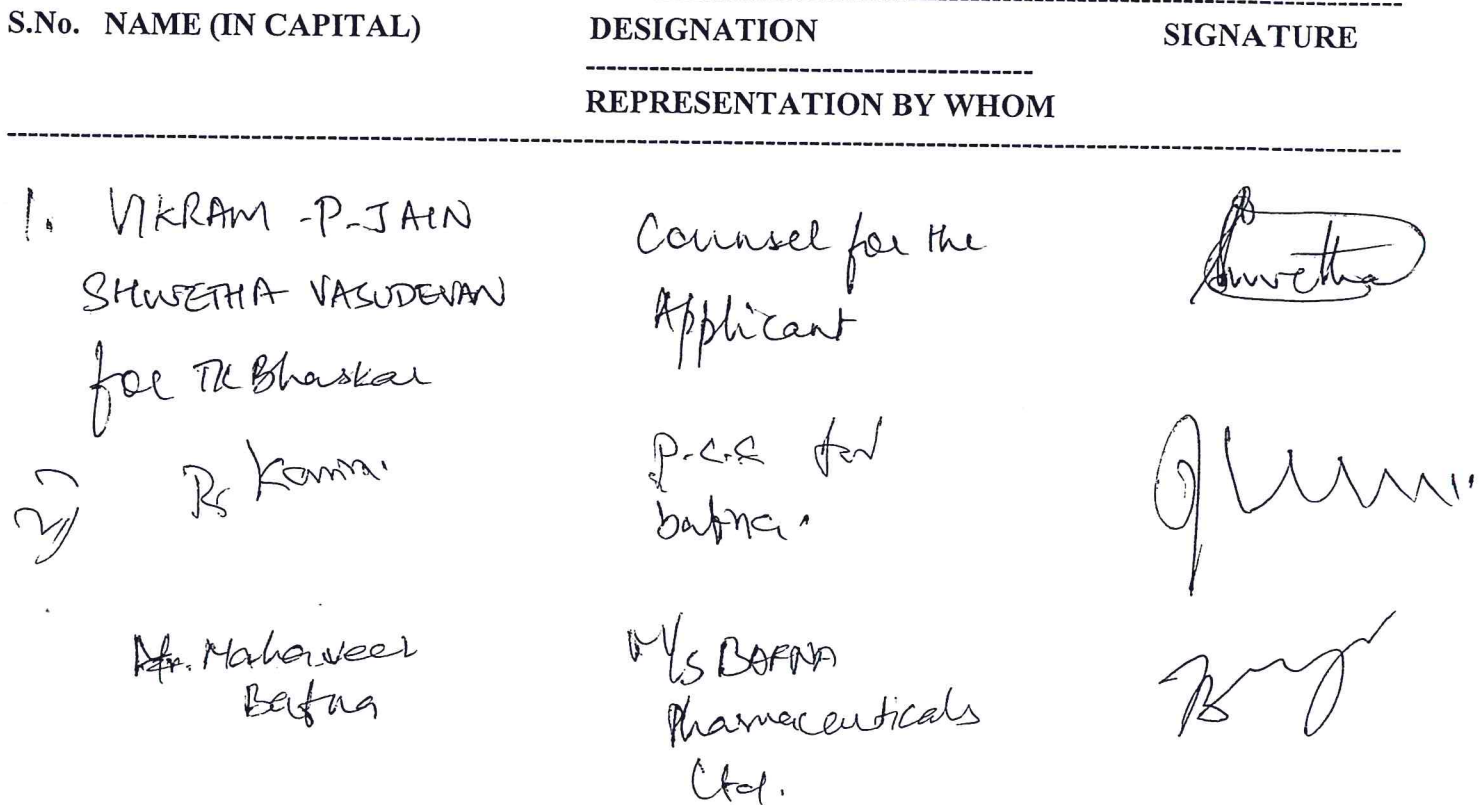 S.No. NAME (IN CAPITAL) DESIGNATION SIGNATURE
REPRESENTATION BY WHOM
1. VIKRAM -P-JAIN
SHWETHA VASUDEVAN
for TK Bhaskar
Counsel for the
Applicant
Shwetha
2)
P.C.S for
bafna.
Mr. Mahaveer
Bafna
M/s BAFNA
Pharmaceuticals
Ltd.